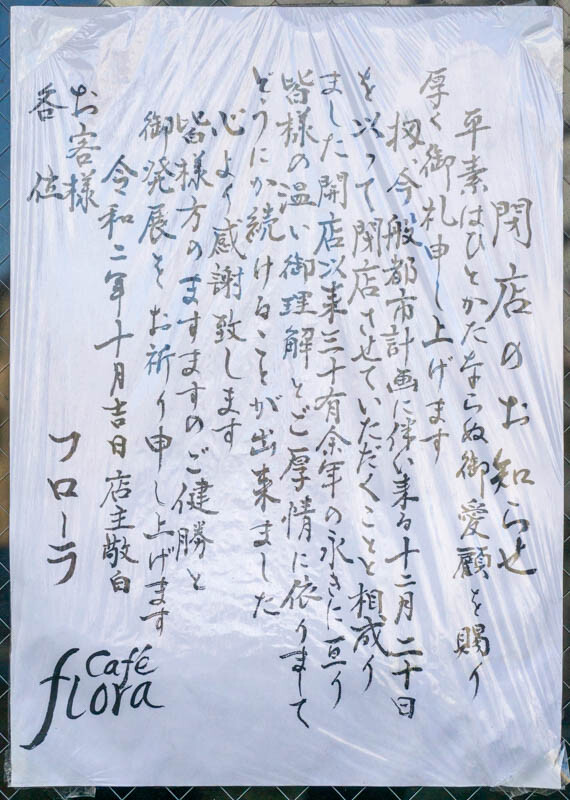 閉店のお知らせ
平素はひとかたならぬ御愛顧を賜り
厚く御礼申し上げます
扨、今般都市計画に伴い来る十二月二十日
を以って閉店させていただくことと相成り
ました開店以来三十有余年の永きに亘り
皆様の温い御理解とご厚情に依りまして
どうにか続けることが出来ました
心よゟ感謝致します
皆様方のますますのご健勝と
御発展をお祈り申し上げます
令和二年十月吉日 店主敬白
お客様
各位
フローラ
Café
flora